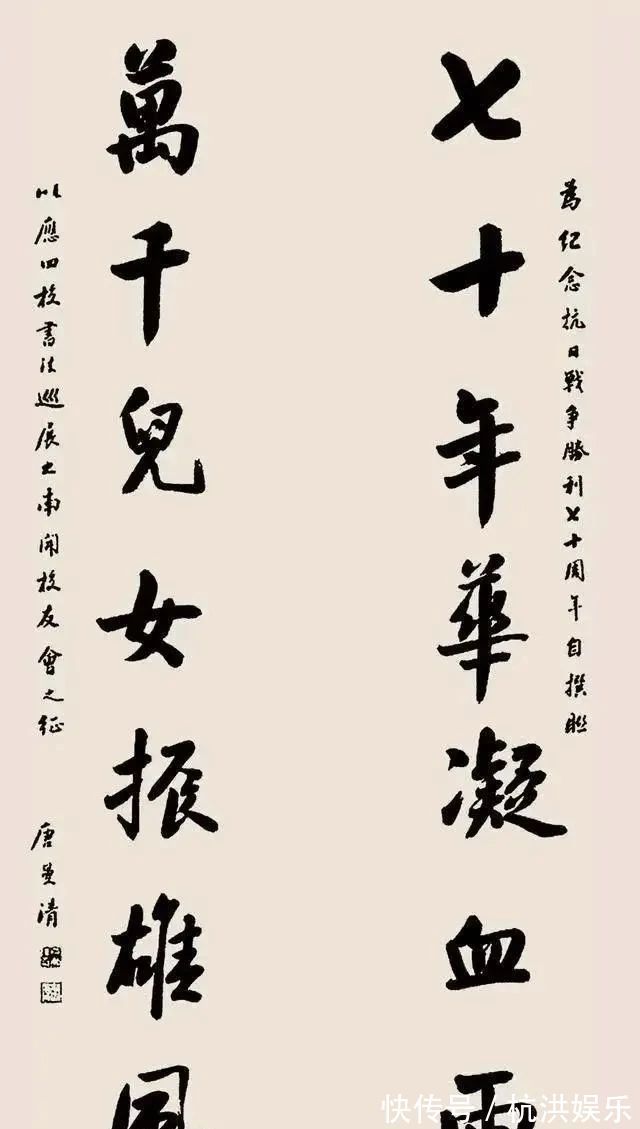 為紀念抗日戰爭勝利七十周年自撰聯
七十年華凝血
萬千兒女振雄
以應四校書法巡展南開校友會之征
唐曼清
快传号/杭洪娱乐